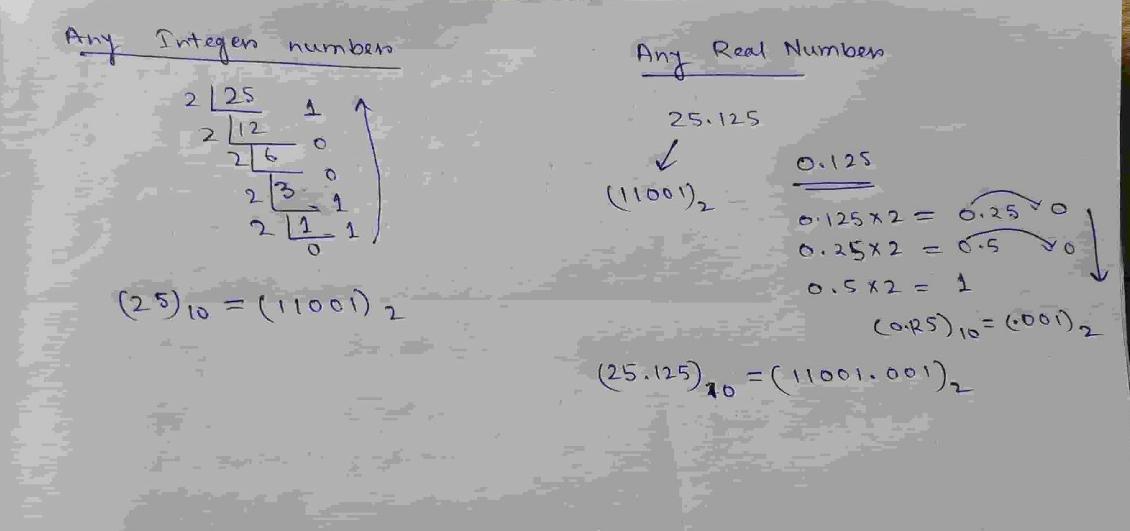 Any Integer number
2 25 1
2 12 0
2 6 0
2 3 1
2 1 1
0
(25)10 = (11001)2
Any Real Number
25.125
(11001)2
0.125
0.125 × 2 = 0.25 0
0.25 × 2 = 0.5 0
0.5 × 2 = 1
(0.125)10 = (.001)2
(25.125)10 = (11001.001)2